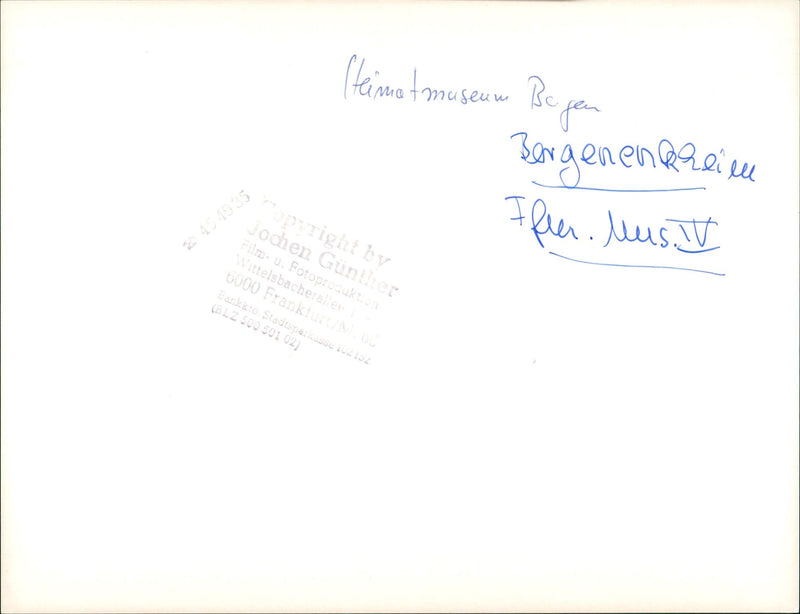 Heimatmuseum Bergen
Bergenenkheim
Ffm. Mus. IV
☎ 45 49 35
Copyright by
Jochen Günther
Film- u. Fotoproduktion
Wittelsbacherallee
6000 Frankfurt/M. 60
Bankkto Stadtsparkasse 102 152
(BLZ 500 501 02)